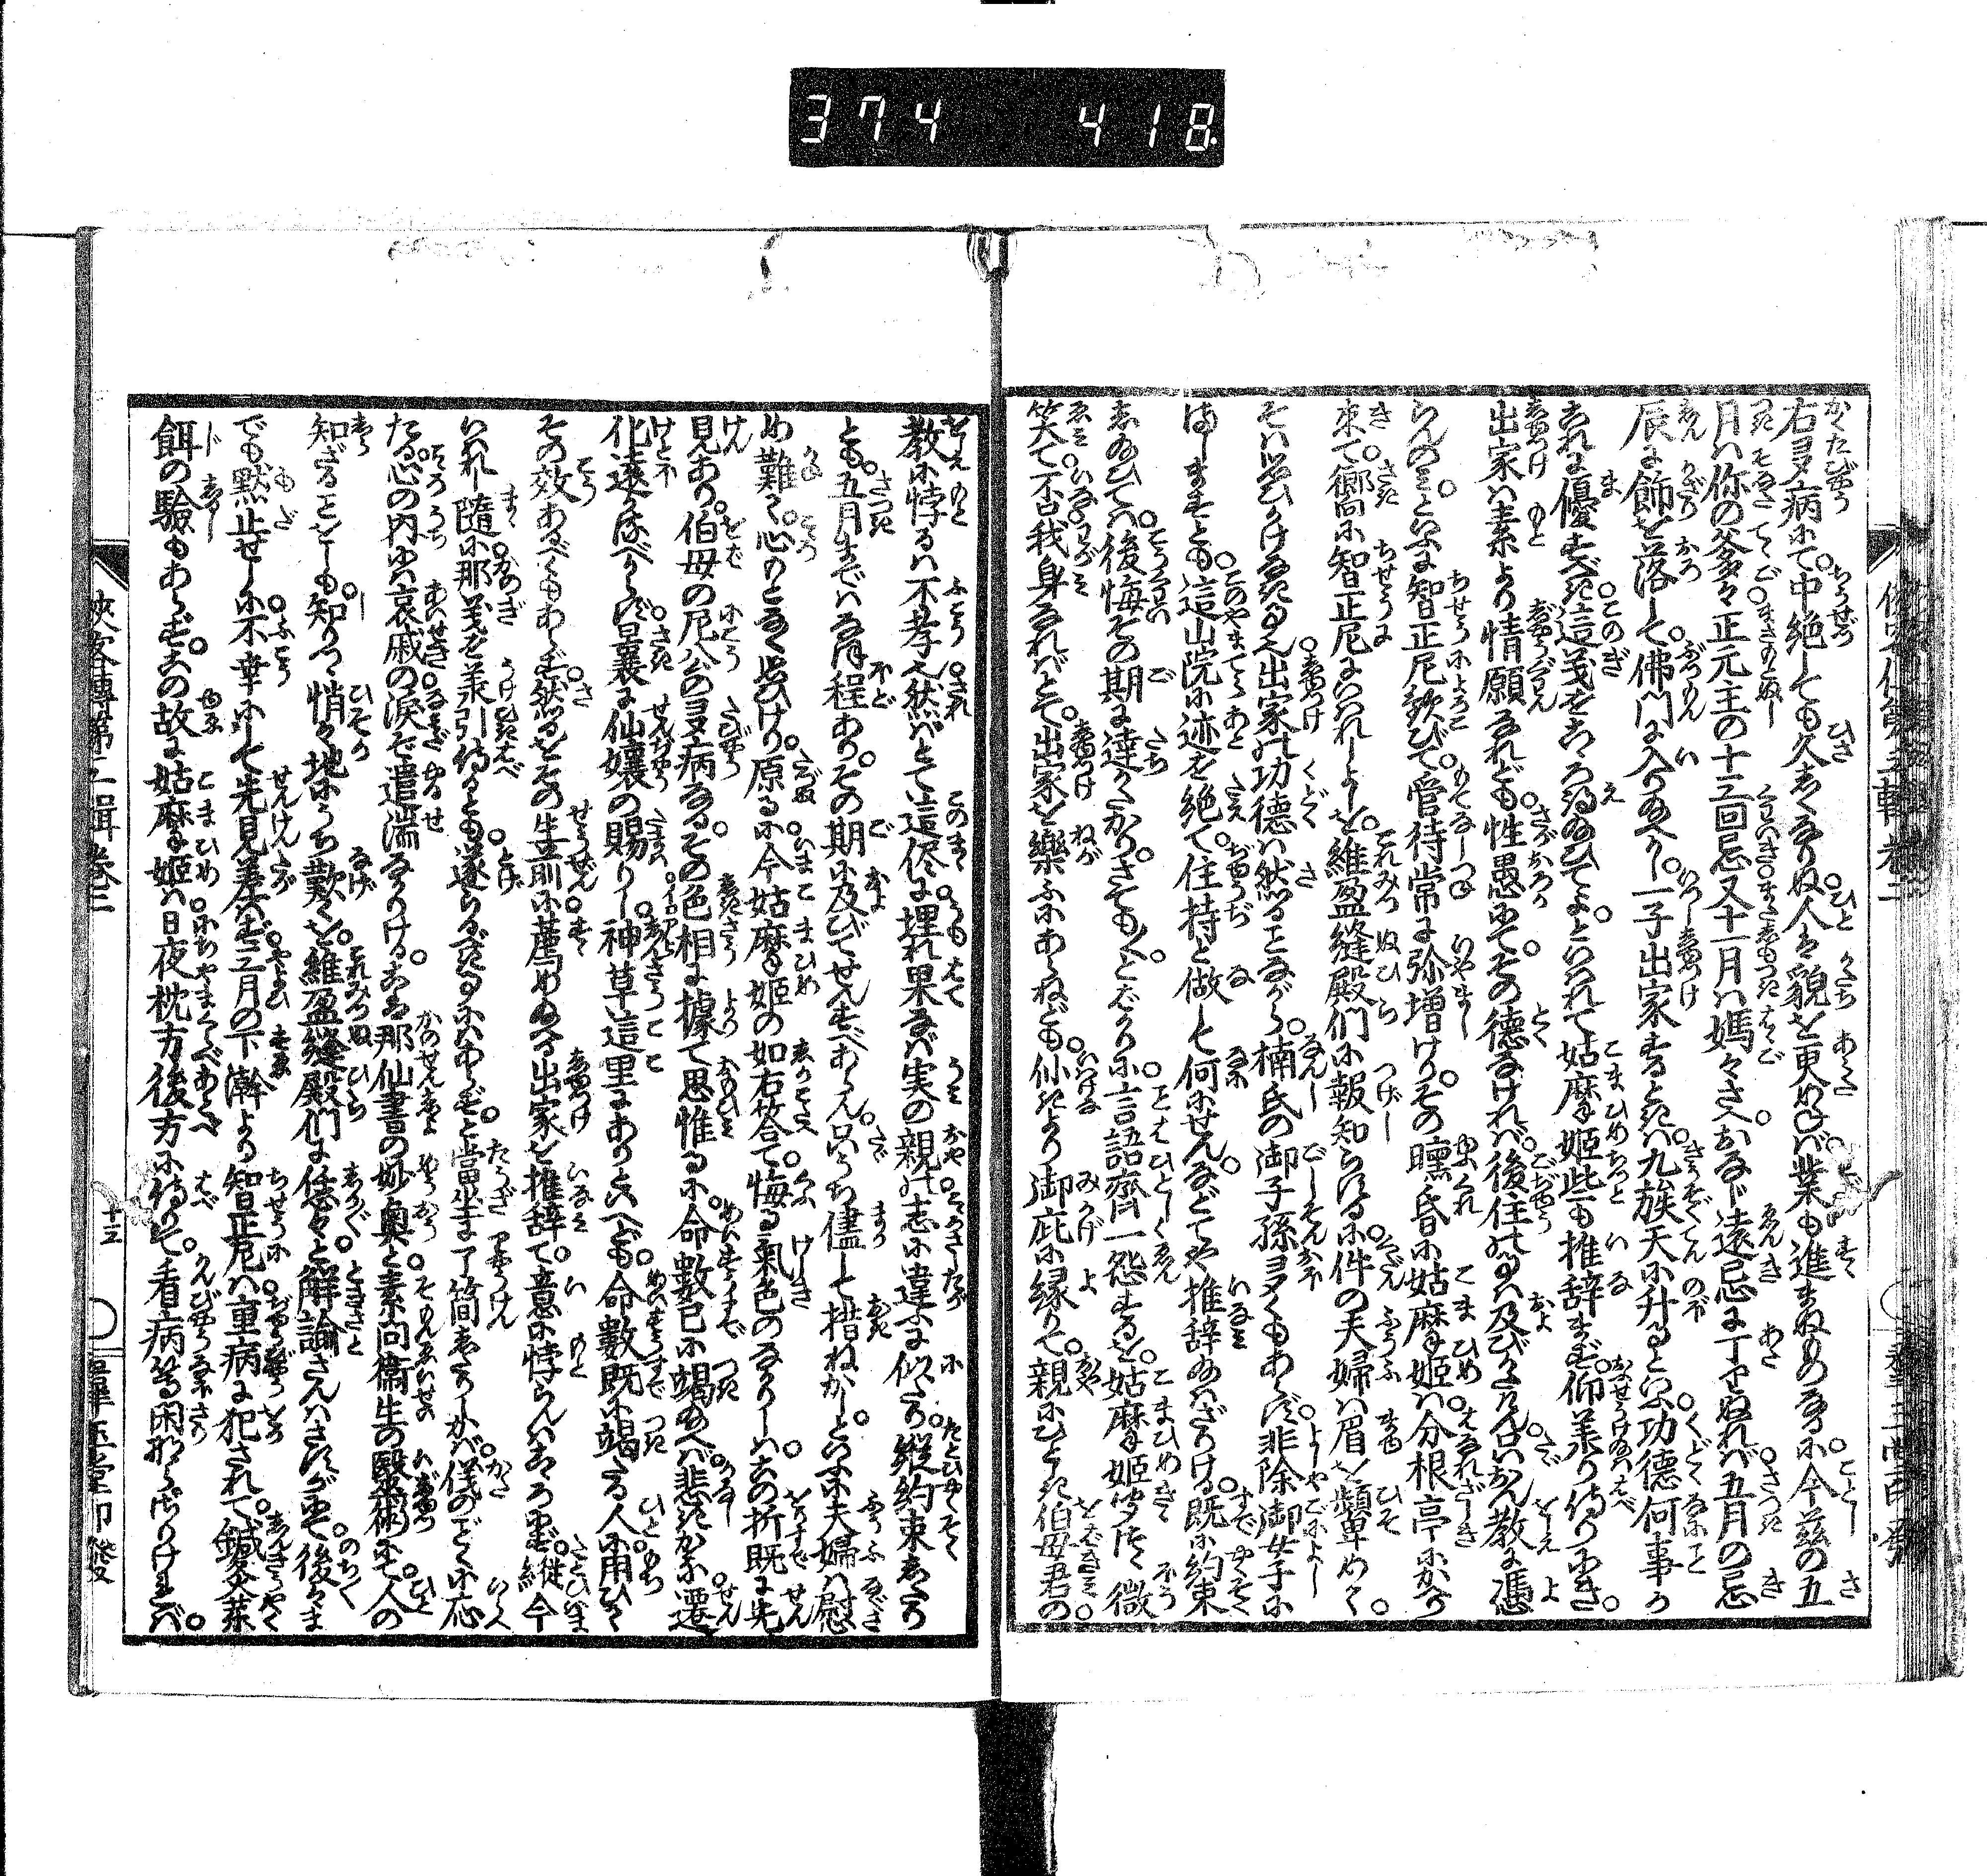 374 418
右ヨタ病にて。中絶しても久しくなりぬ。人は貌を更めざれば業も進まぬものなるに。今茲の五
月は你の爹々正元主の十三回忌。又十一月は媽々さへおなじ遠忌に丁りぬれば。五月の忌
辰に飾を落して。佛門に入り給へかし。一子出家するときは。九族天に升るといふ。功徳何事か
これに優すべき。這義をこころ得給ひてよ。といはれて姑摩姫些も推辞まず。仰承り侍りにき。
出家は素より情願なれども。性愚にて。その徳なければ。後住の事は及びがたし。只お教に憑
らんのみ。といふに智正尼歓びて。管待常に弥増けり。その曛昏に姑摩姫は。分根亭にかへり
来て。嚮に智正尼にいはれしよしを。維盈縫殿們に報知らするに。件の夫婦は眉を顰めて。
そは思ひがけなき事也。出家の功徳は然ることながら。楠氏の御子孫ヨタくもあらず。非除御女子に
ましますとも。這山院に迹を絶て。住持と做して何にせん。などてや推辞給はざりける。既に約束
し給ひては。後悔その期に達がたかり。さても〳〵とばかりに。言語齊一怨ずるを。姑摩姫聞つゝ微
笑て。否。我身なればとて。出家を樂ふにあらねども。仏より御庇に縁りて。親にひとしき伯母君の
教に悖るは不孝也。然ばとて這侭に埋れ果なば。実の親の志に違ふに似たり。縦約束したり
とも。五月まではなほ程あり。その期に及びてせんすべあらん。只うち儘して措ねかし。といふに夫婦は慰
め難て。心のともなく思ひけり。原るに今姑摩姫の如右答て。悔る氣色のなかりしは。この折既に先
見あり。伯母の尼公のヨタ病なる。その色相に據て思惟るに。命數已に竭給へば。悲きかな遷
化遠かるべからず。曩に仙嬢の賜りし神草。這里にありといへども。命數既に竭たる人に。用ひて
その效あるべくもあらず。然るをその生前に薦め給へる出家を推辞て。意に悖らんはこころ憂。縦今
いはれし隨に那義を承引侍るとも。遂らるべき事にはあらず。と當坐に了簡したりしかば。儀のごとく応
たる。心の内には哀戚の涙ぞ遣瀬なかりける。こは那仙書の妙奥と。素問衞生の醫術にて。人の
知ざることをしも。知りつゝ悄々地にうち歎くを。維盈縫殿們に恁々と。解諭さんはさすがにて。後々ま
でも黙止せしに。不幸にして先見差はず。三月の下澣より。智正尼は重病に犯されて。鍼灸藥
餌の驗もあらず。この故に姑摩姫は。日夜枕方後方に侍りて。看病等閑ならざりければ。
侠客傳第二輯巻二
十三